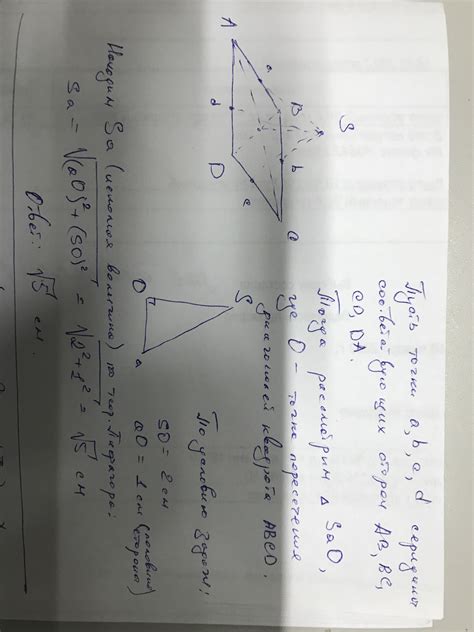 Пусть точки a, b, c, d середины
соответствующих сторон AB, BC,
CD, DA.
Тогда рассмотрим Δ SaO,
где O - точка пересечения
диагоналей квадрата ABCD.
S
B
b
a
A
d
D
c
C
S
O
a
По условию задачи:
SO = 2 см
aO = 1 см (половина
стороны)
Находим Sa (искомая величина) по теор. Пифагора:
Sa = √(aO)² + (SO)² = √2² + 1² = √5 см
Ответ: √5 см.